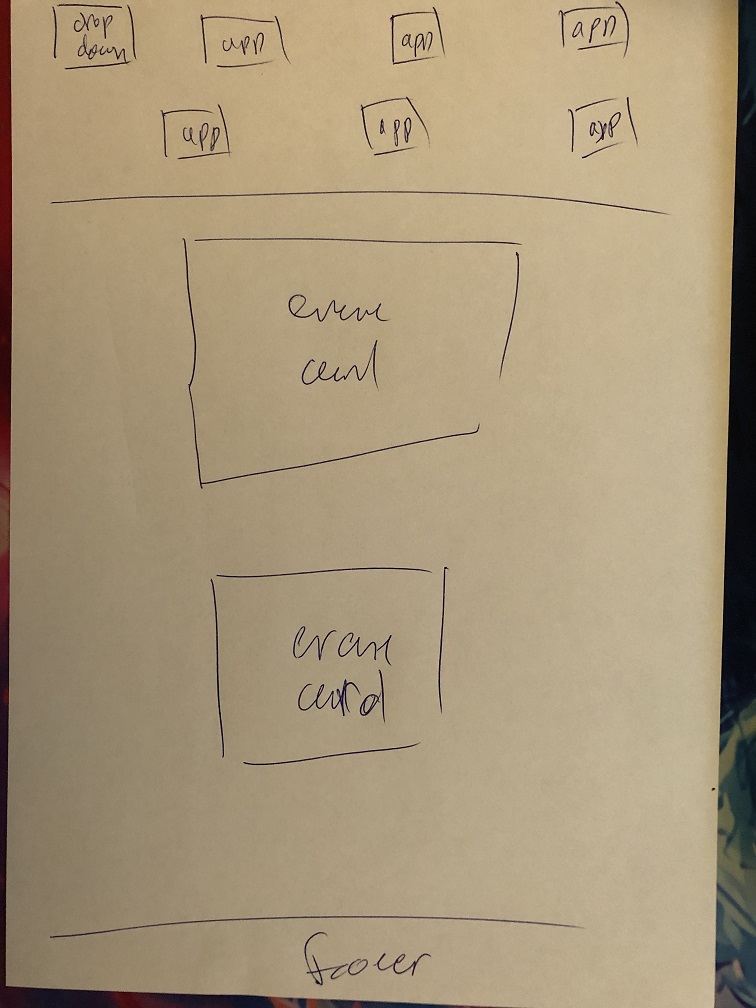 drop
down
app
app
app
app
app
app
card
card
footer